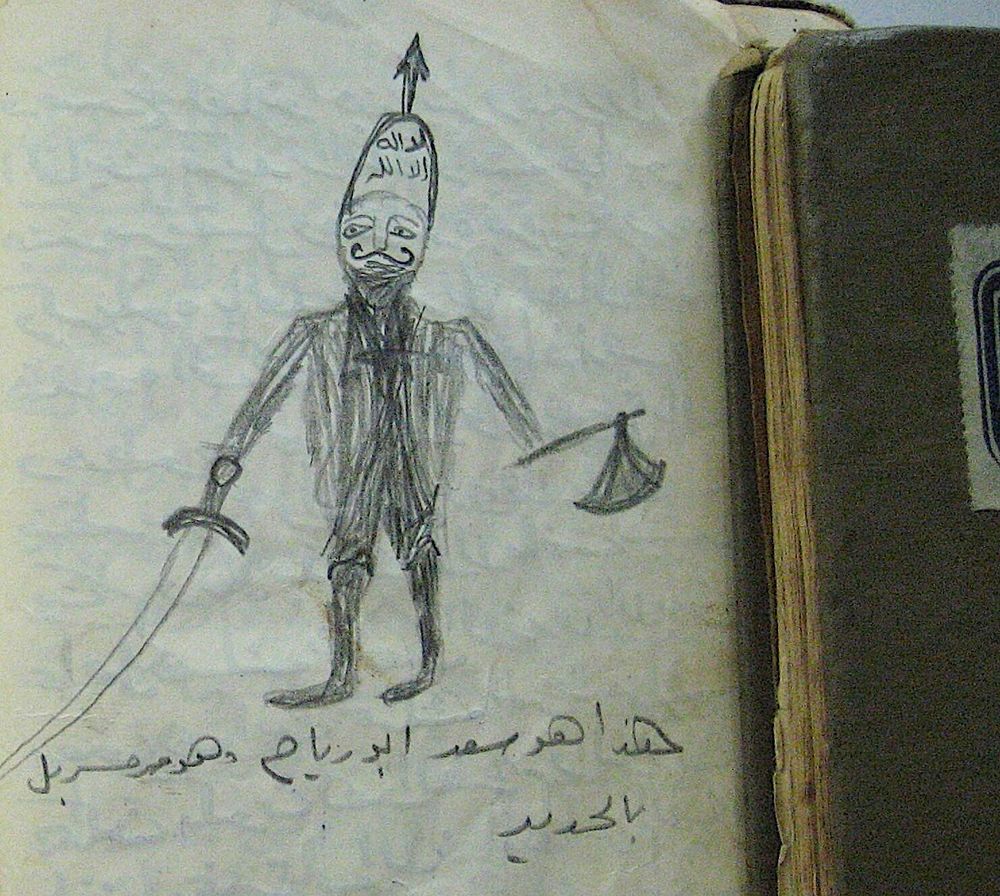 لا اله
الا الله
هذا هو سعد ابو رياح وهو مسربل
بالحديد